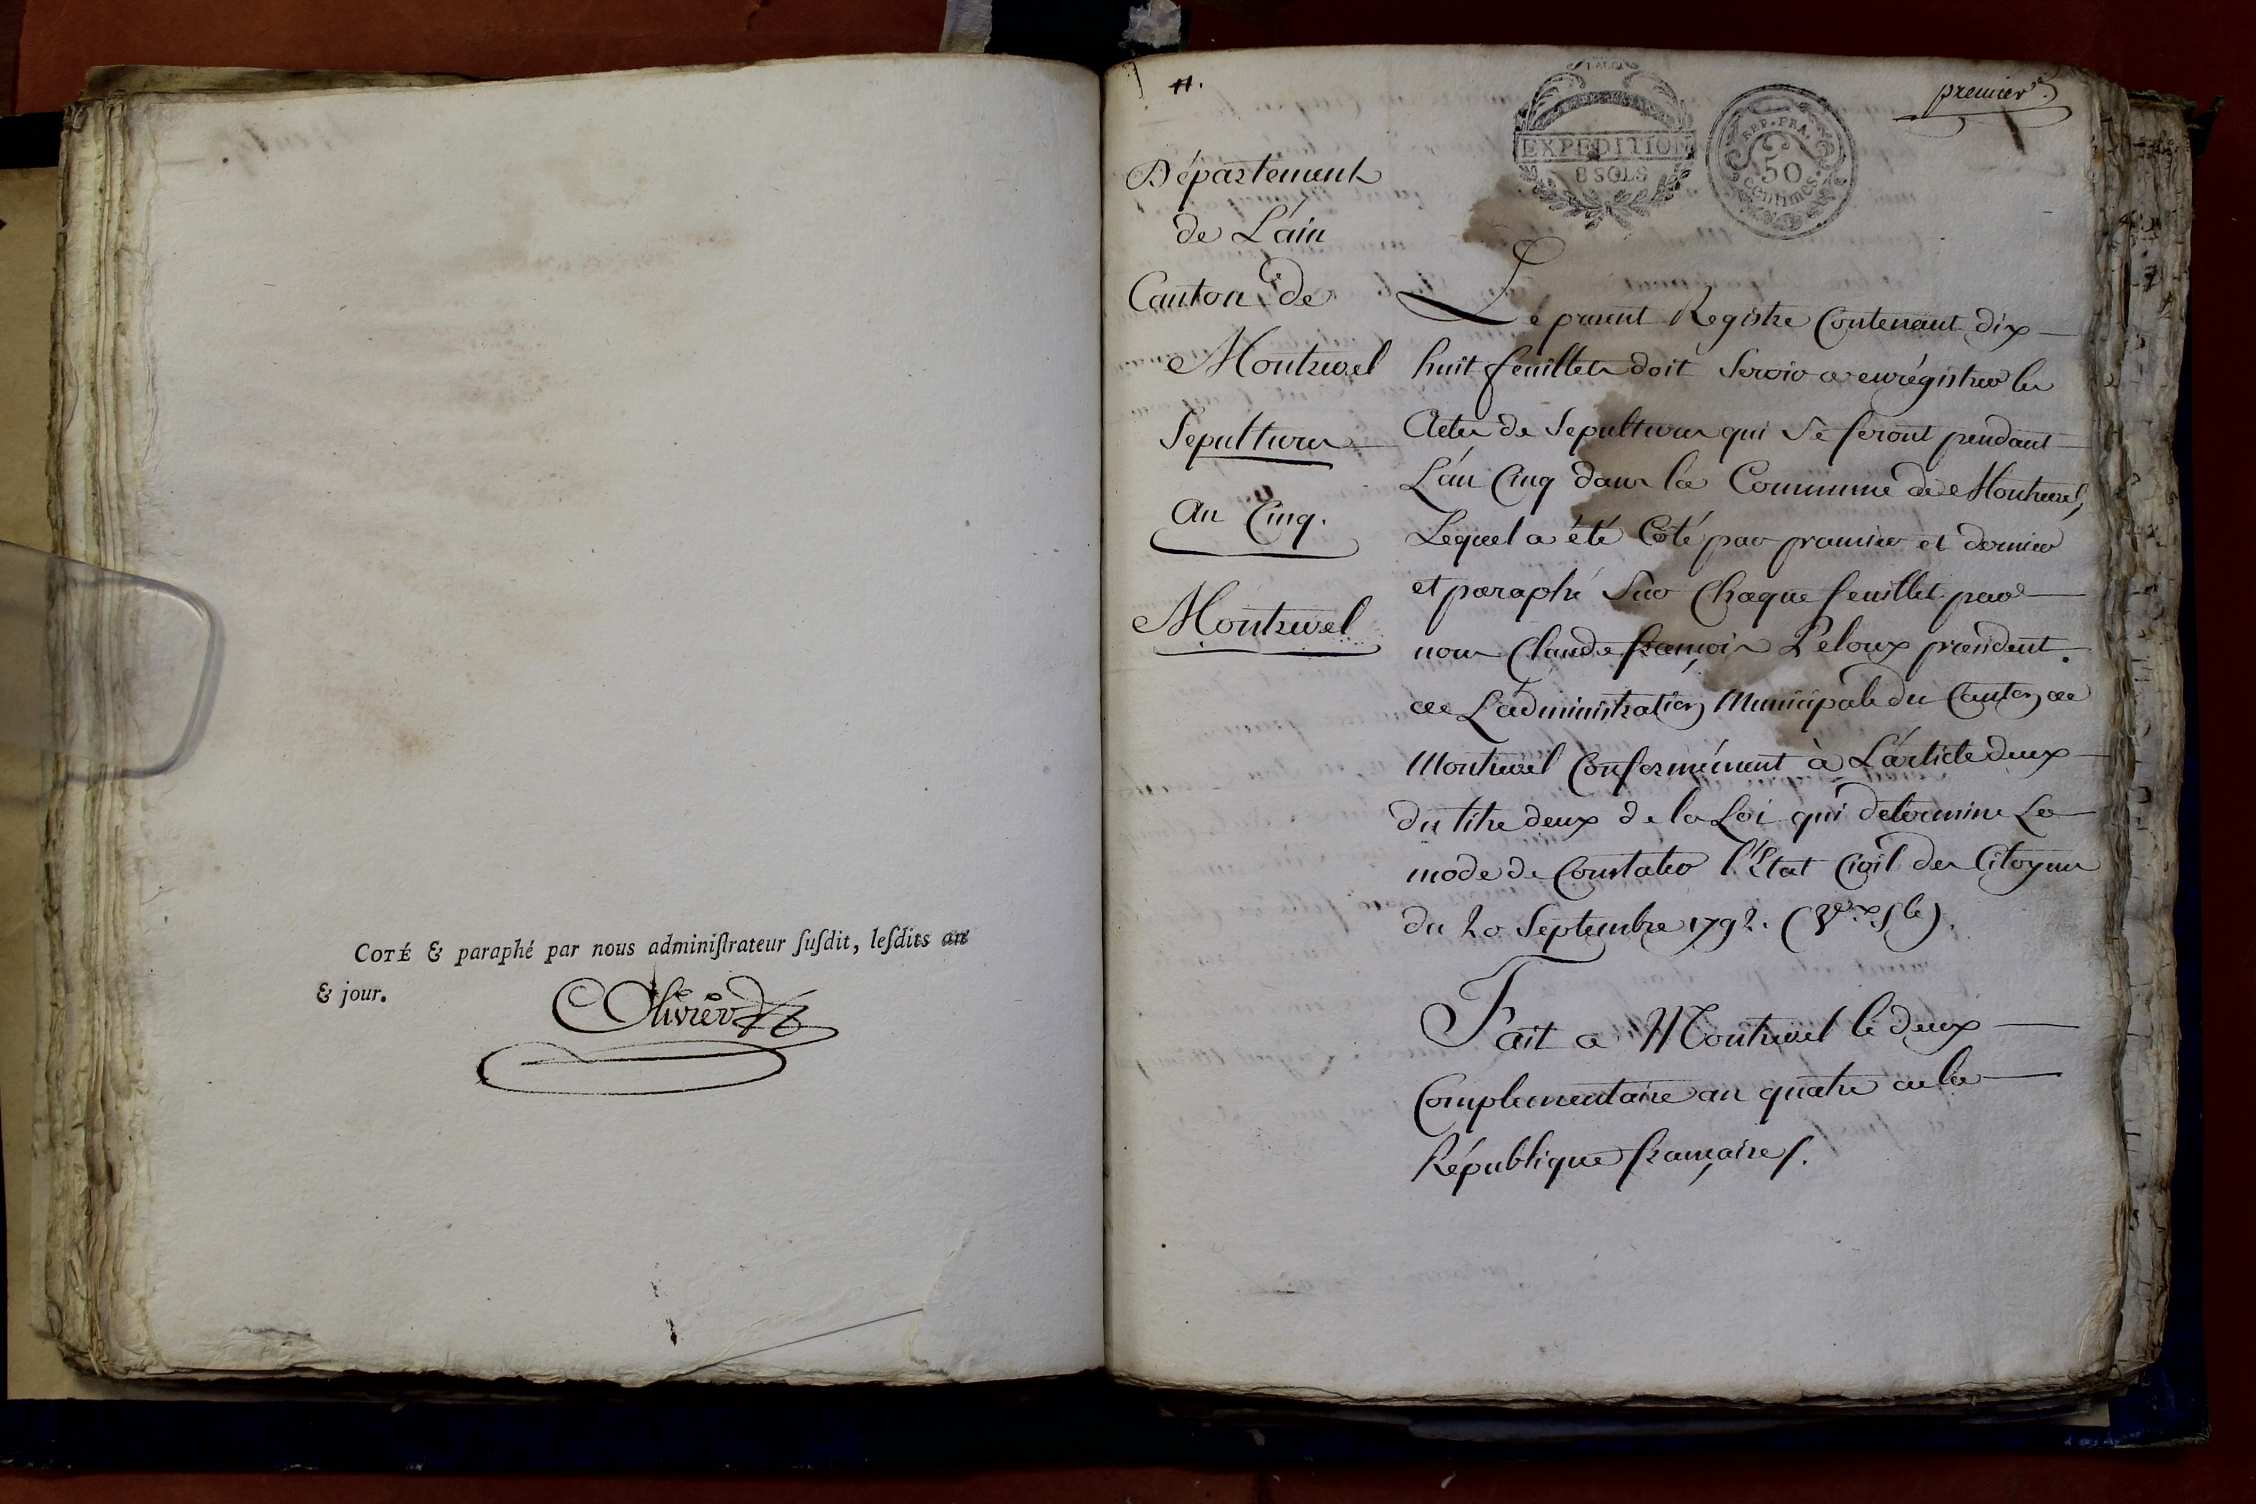 COTÉ & paraphé par nous adminiſtrateur ſuſdit, leſdits an
& jour.
Olivier
11.
premier
EXPEDITION
8 SOLS
REP. FRA.
50
centimes.
Département
de L'ain
Canton de
Montrevel
Sepultures
An Cinq.
Montrevel
Le present Registre Contenant dix
huit feuillets doit Servir a enrégistrer les
Actes de Sepultures qui Se feront pendant
L'an Cinq dans la Commune de Montrevel,
Lequel a été Coté par premier et dernier
et paraphé Sur Chaque feuillet par
nous Claude françois Peloux président
de L'administration Municipale du Canton de
Montrevel Conformément à L'article deux
du titre deux de la Loi qui determine Le
mode de Constater l'Etat Civil des Citoyens
du 20 Septembre 1792.
Fait a Montrevel le deux
Complementaire an quatre de la
République française.